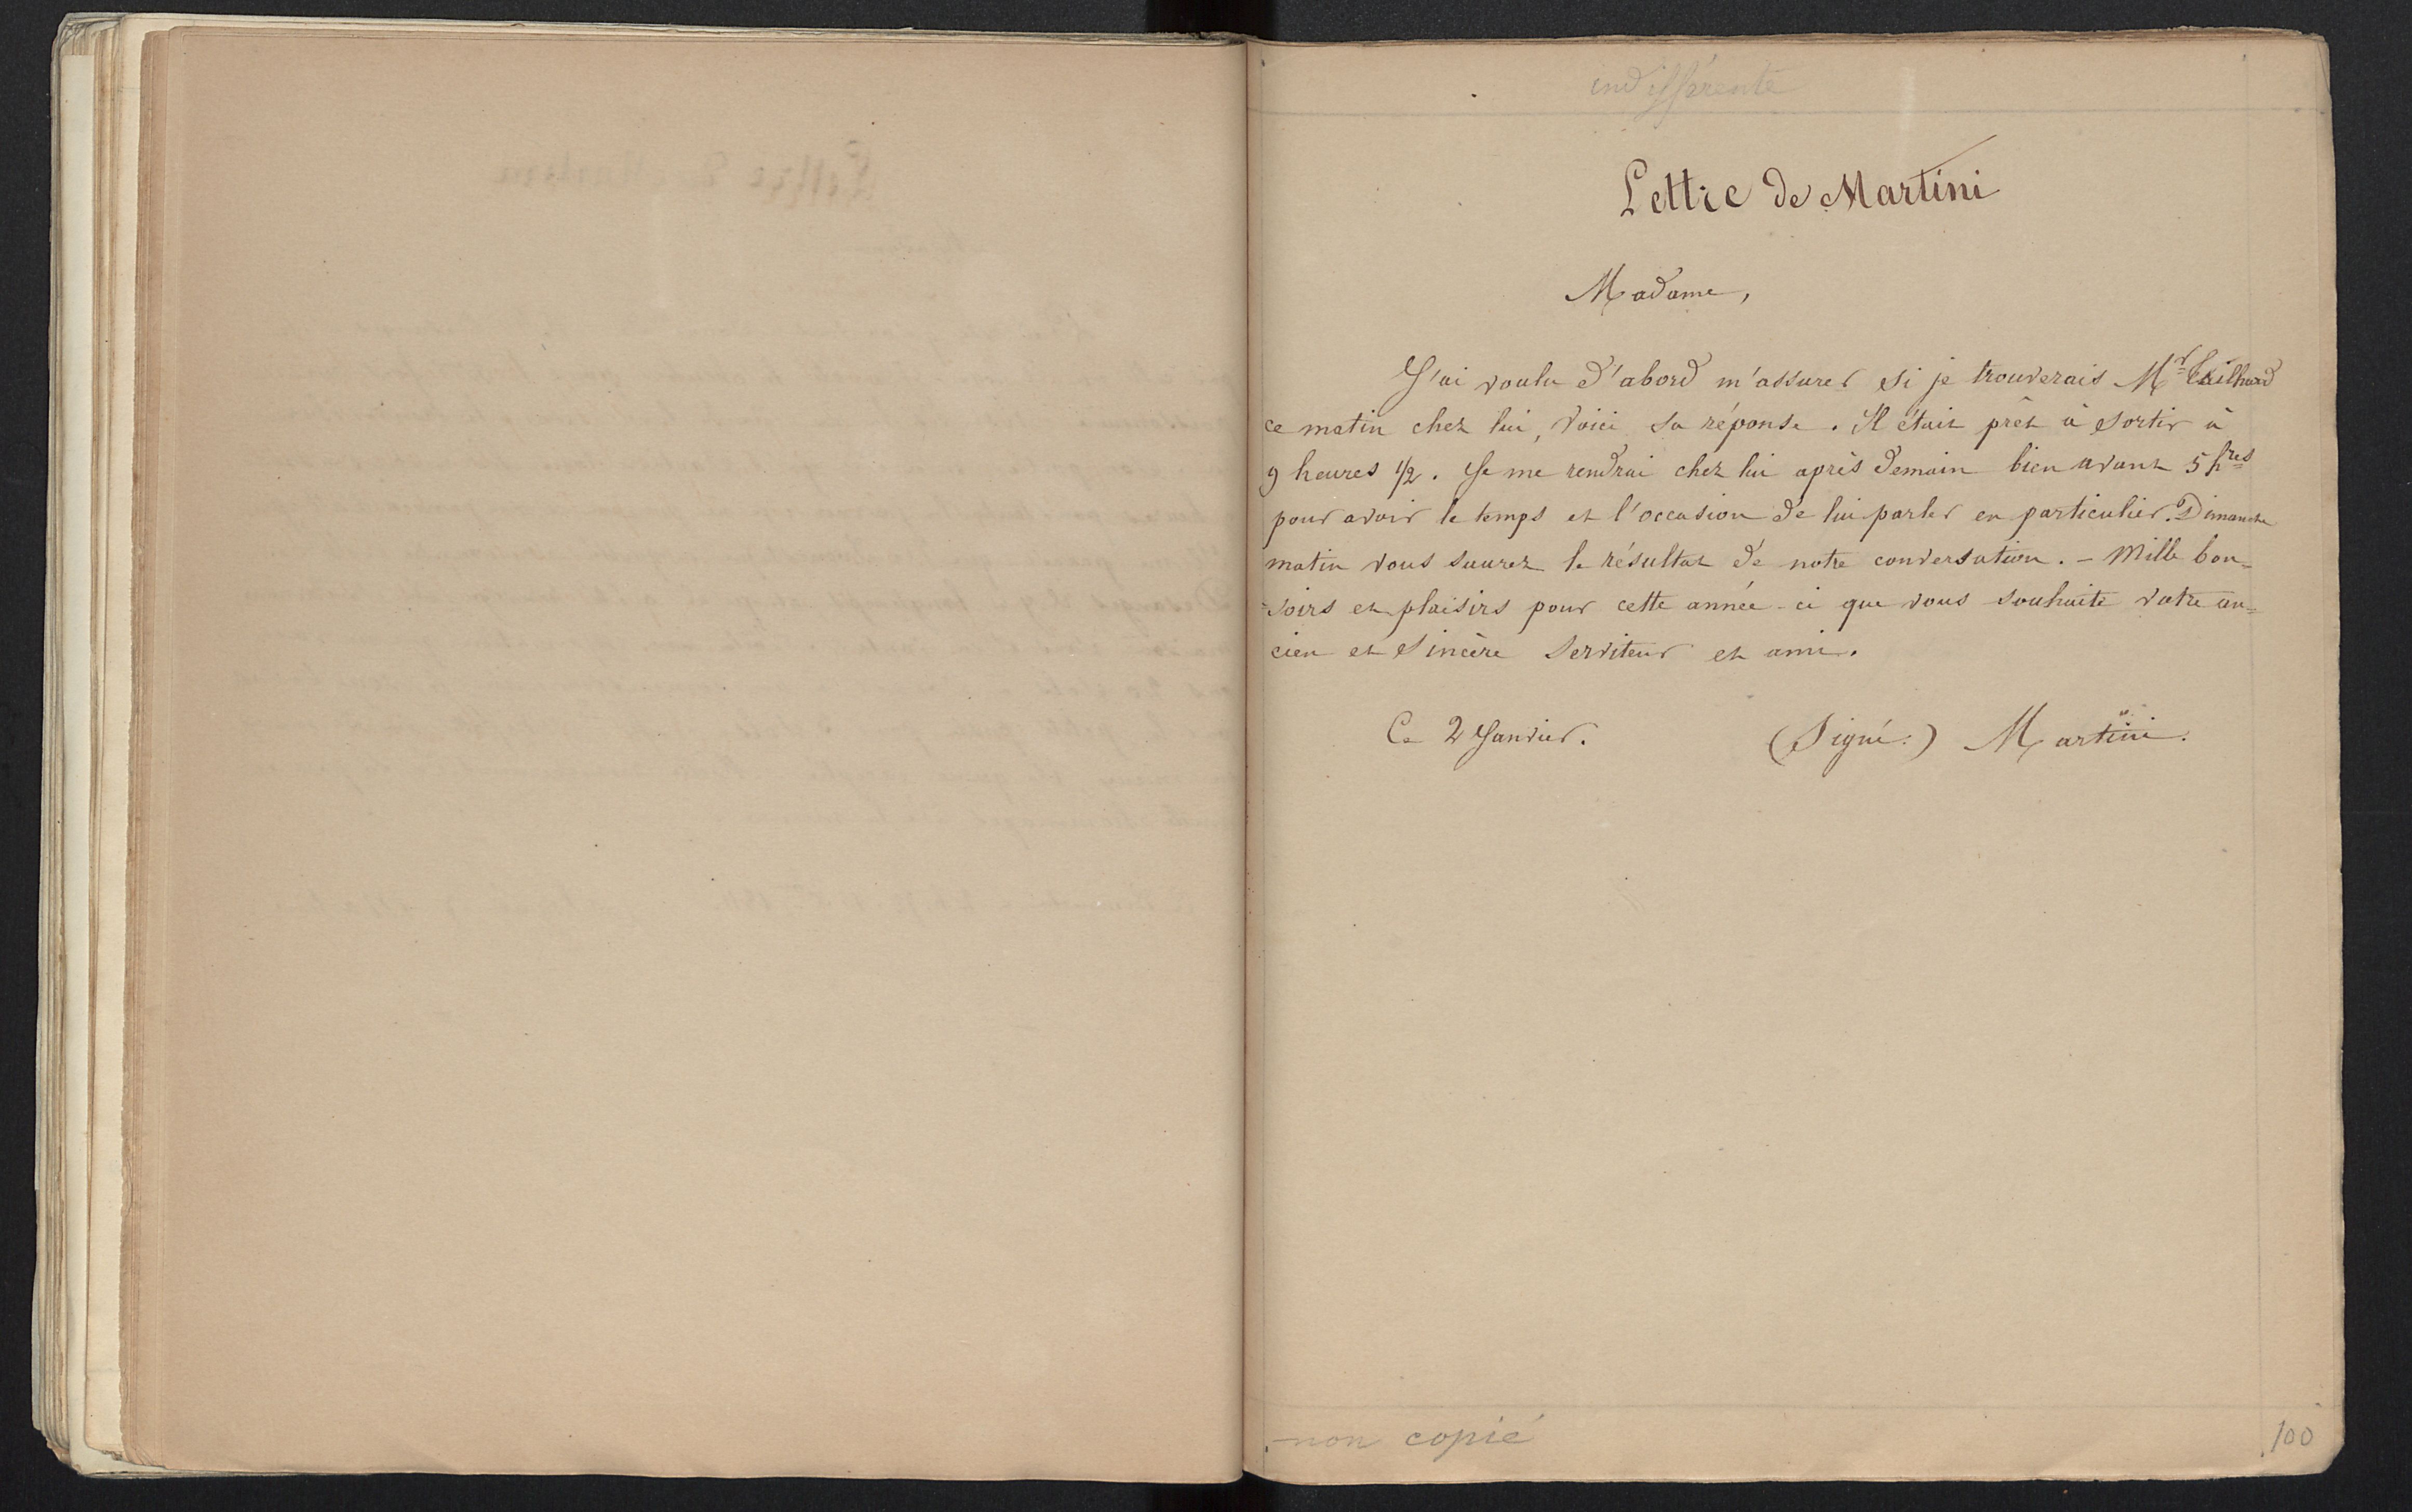 indifférente
Lettre de Martini
Madame,
J'ai voulu d'abord m'assurer si je trouverais Mr
ce matin chez lui, voici sa réponse. Il était prêt à sortir à
9 heures 1/2. Je me rendrai chez lui après demain bien avant 5 hres
pour avoir le temps et l'occasion de lui parler en particulier. Dimanche
matin vous saurez le résultat de notre conversation. - Mille bon=
=soirs et plaisirs pour cette année-ci que vous souhaite votre an=
cien et sincère serviteur et ami.
Ce 2 Janvier. (Signé:) Martini.
non copié
100